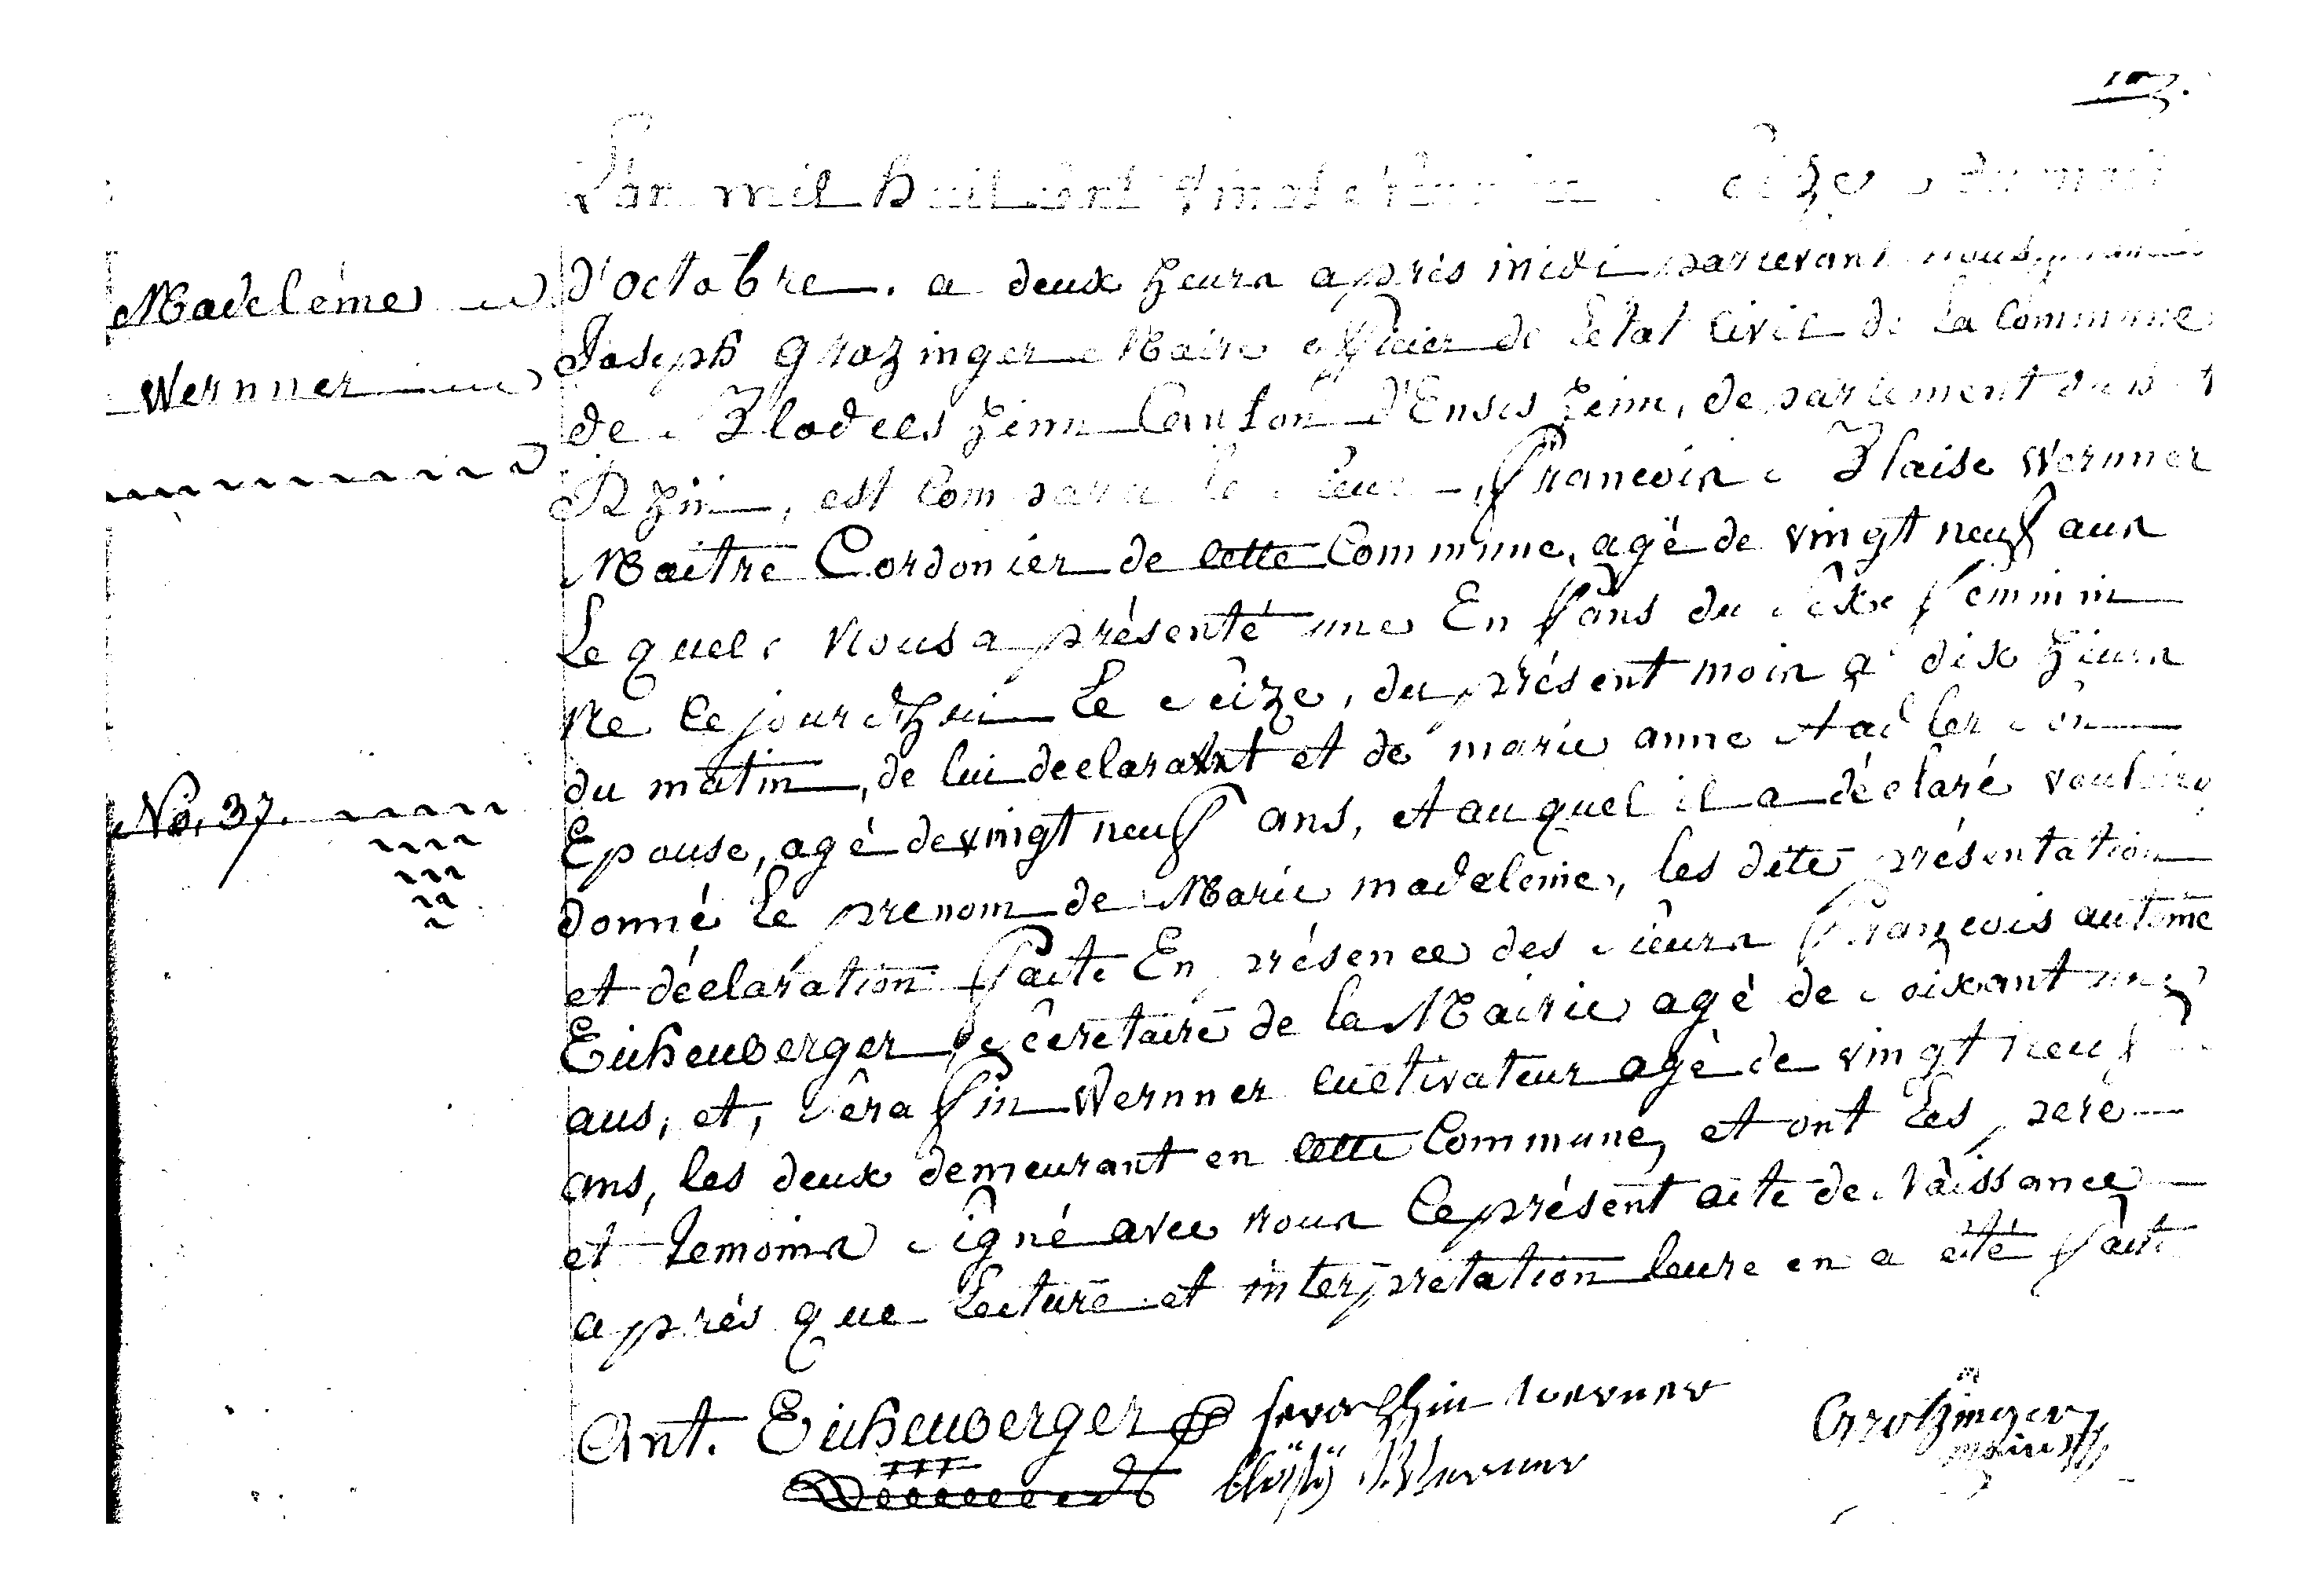 L'an mil huit cent vingt le seize du mois
Madeleine
d'octobre. a deux heurs aprés midi pardevant nous
Joseph Grozinger Maire officier de l'etat Civil de la Commune
Wernner
de Blodelsheim Canton d'Ensisheim, departement du
Rhin, est comparu le sieur Francois Blaise Wernner
Maitre Cordonier de cette Commune, agé de vingt neuf ans
Le quel nous a présenté une Enfans du sexe feminin
ne ce jourdhui le seize, du présent mois a dix heurs
du matin, de lui declarant et de marie anne Stadler son
No. 37.
Epouse, agé de vingt neuf ans, et au quel il a déclaré vouloir
donné le prenom de Marie madeleine, les dite présentation
et déclaration faite En présence des sieurs François antoine
Eichenberger secretaire de la Mairie agé de soixant
ans, et, sérafin Wernner cultivateur agé de vingt neuf
ans, les deux demeurant en cette Commune, et ont les pere
et temoins signé avec nous le présent acte de Naissance
aprés que Lecture et interpretation leure en a eté faite
Ant. Eichenberger seraphin werner Grotzinger
maire
bläsy Werner